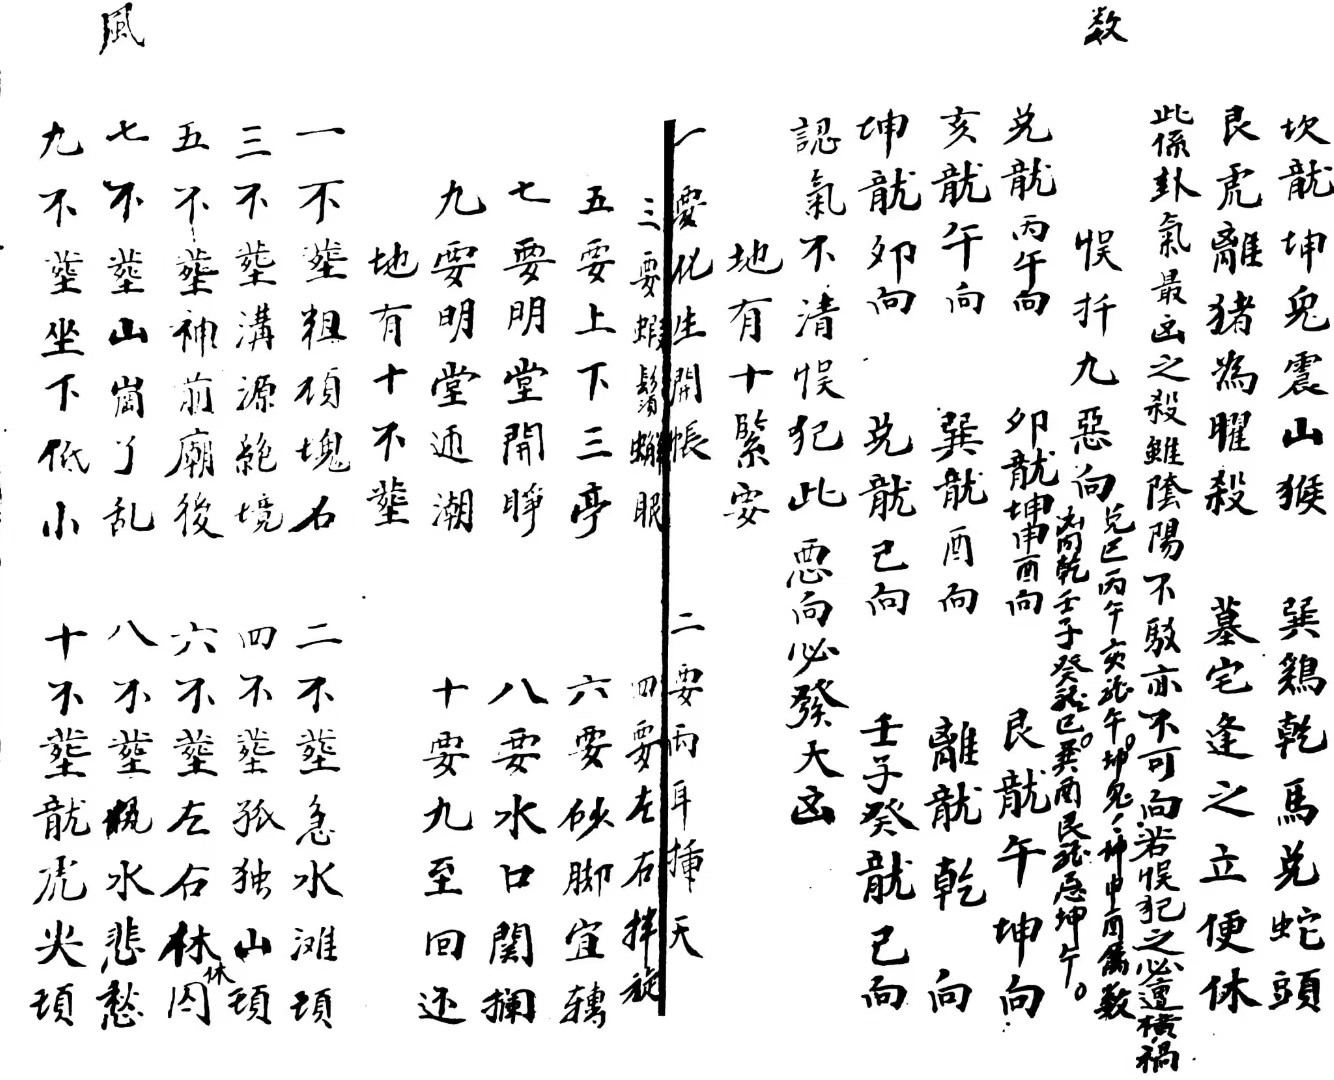 数
坎龍坤兔震山猴 巽鷄乾馬兑蛇頭
艮虎離猪為曜殺 墓宅逢之立便休
此係卦氣最凶之殺雖陰陽不駁亦不可向若悮犯之必遭横禍
悮扦九惡向
兑巳丙午亥龍午坤兔坤申酉
凶向乾壬子癸龍巳巽酉艮龍忌坤午。
兑龍丙午向 卯龍坤申酉向 艮龍午坤向
亥龍午向 巽龍酉向 離龍乾向
坤龍夘向 兑龍己向 壬子癸龍己向
認氣不清悮犯此惡向必發大凶
地有十緊要
一要化生開帳 二要両耳挿天
三要蝦鬚蠏眼 四要左右拌旋
五要上下三亭 六要砂脚宜轉
七要明堂開睜 八要水口関攔
九要明堂迊潮 十要九至回还
地有十不塟
一不塟粗頑塊石 二不塟急水滩頭
三不塟溝源絶境 四不塟孤独山頭
五不塟神前廟後 六不塟左右休囚
休
七不塟山崗了乱 八不塟水悲愁
九不塟坐下低小 十不塟龍虎尖頭
風